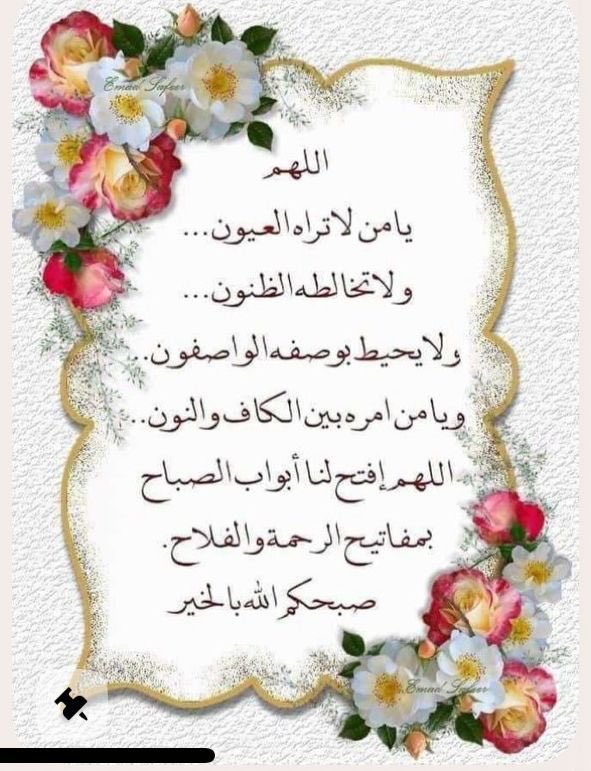 Emad Safeer
اللهم
يا من لا تراه العيون...
ولا تخالطه الظنون...
ولا يحيط بوصفه الواصفون..
ويا من امره بين الكاف والنون..
اللهم إفتح لنا أبواب الصباح
بمفاتيح الرحمة والفلاح.
صبحكم الله بالخير
Emad Safeer